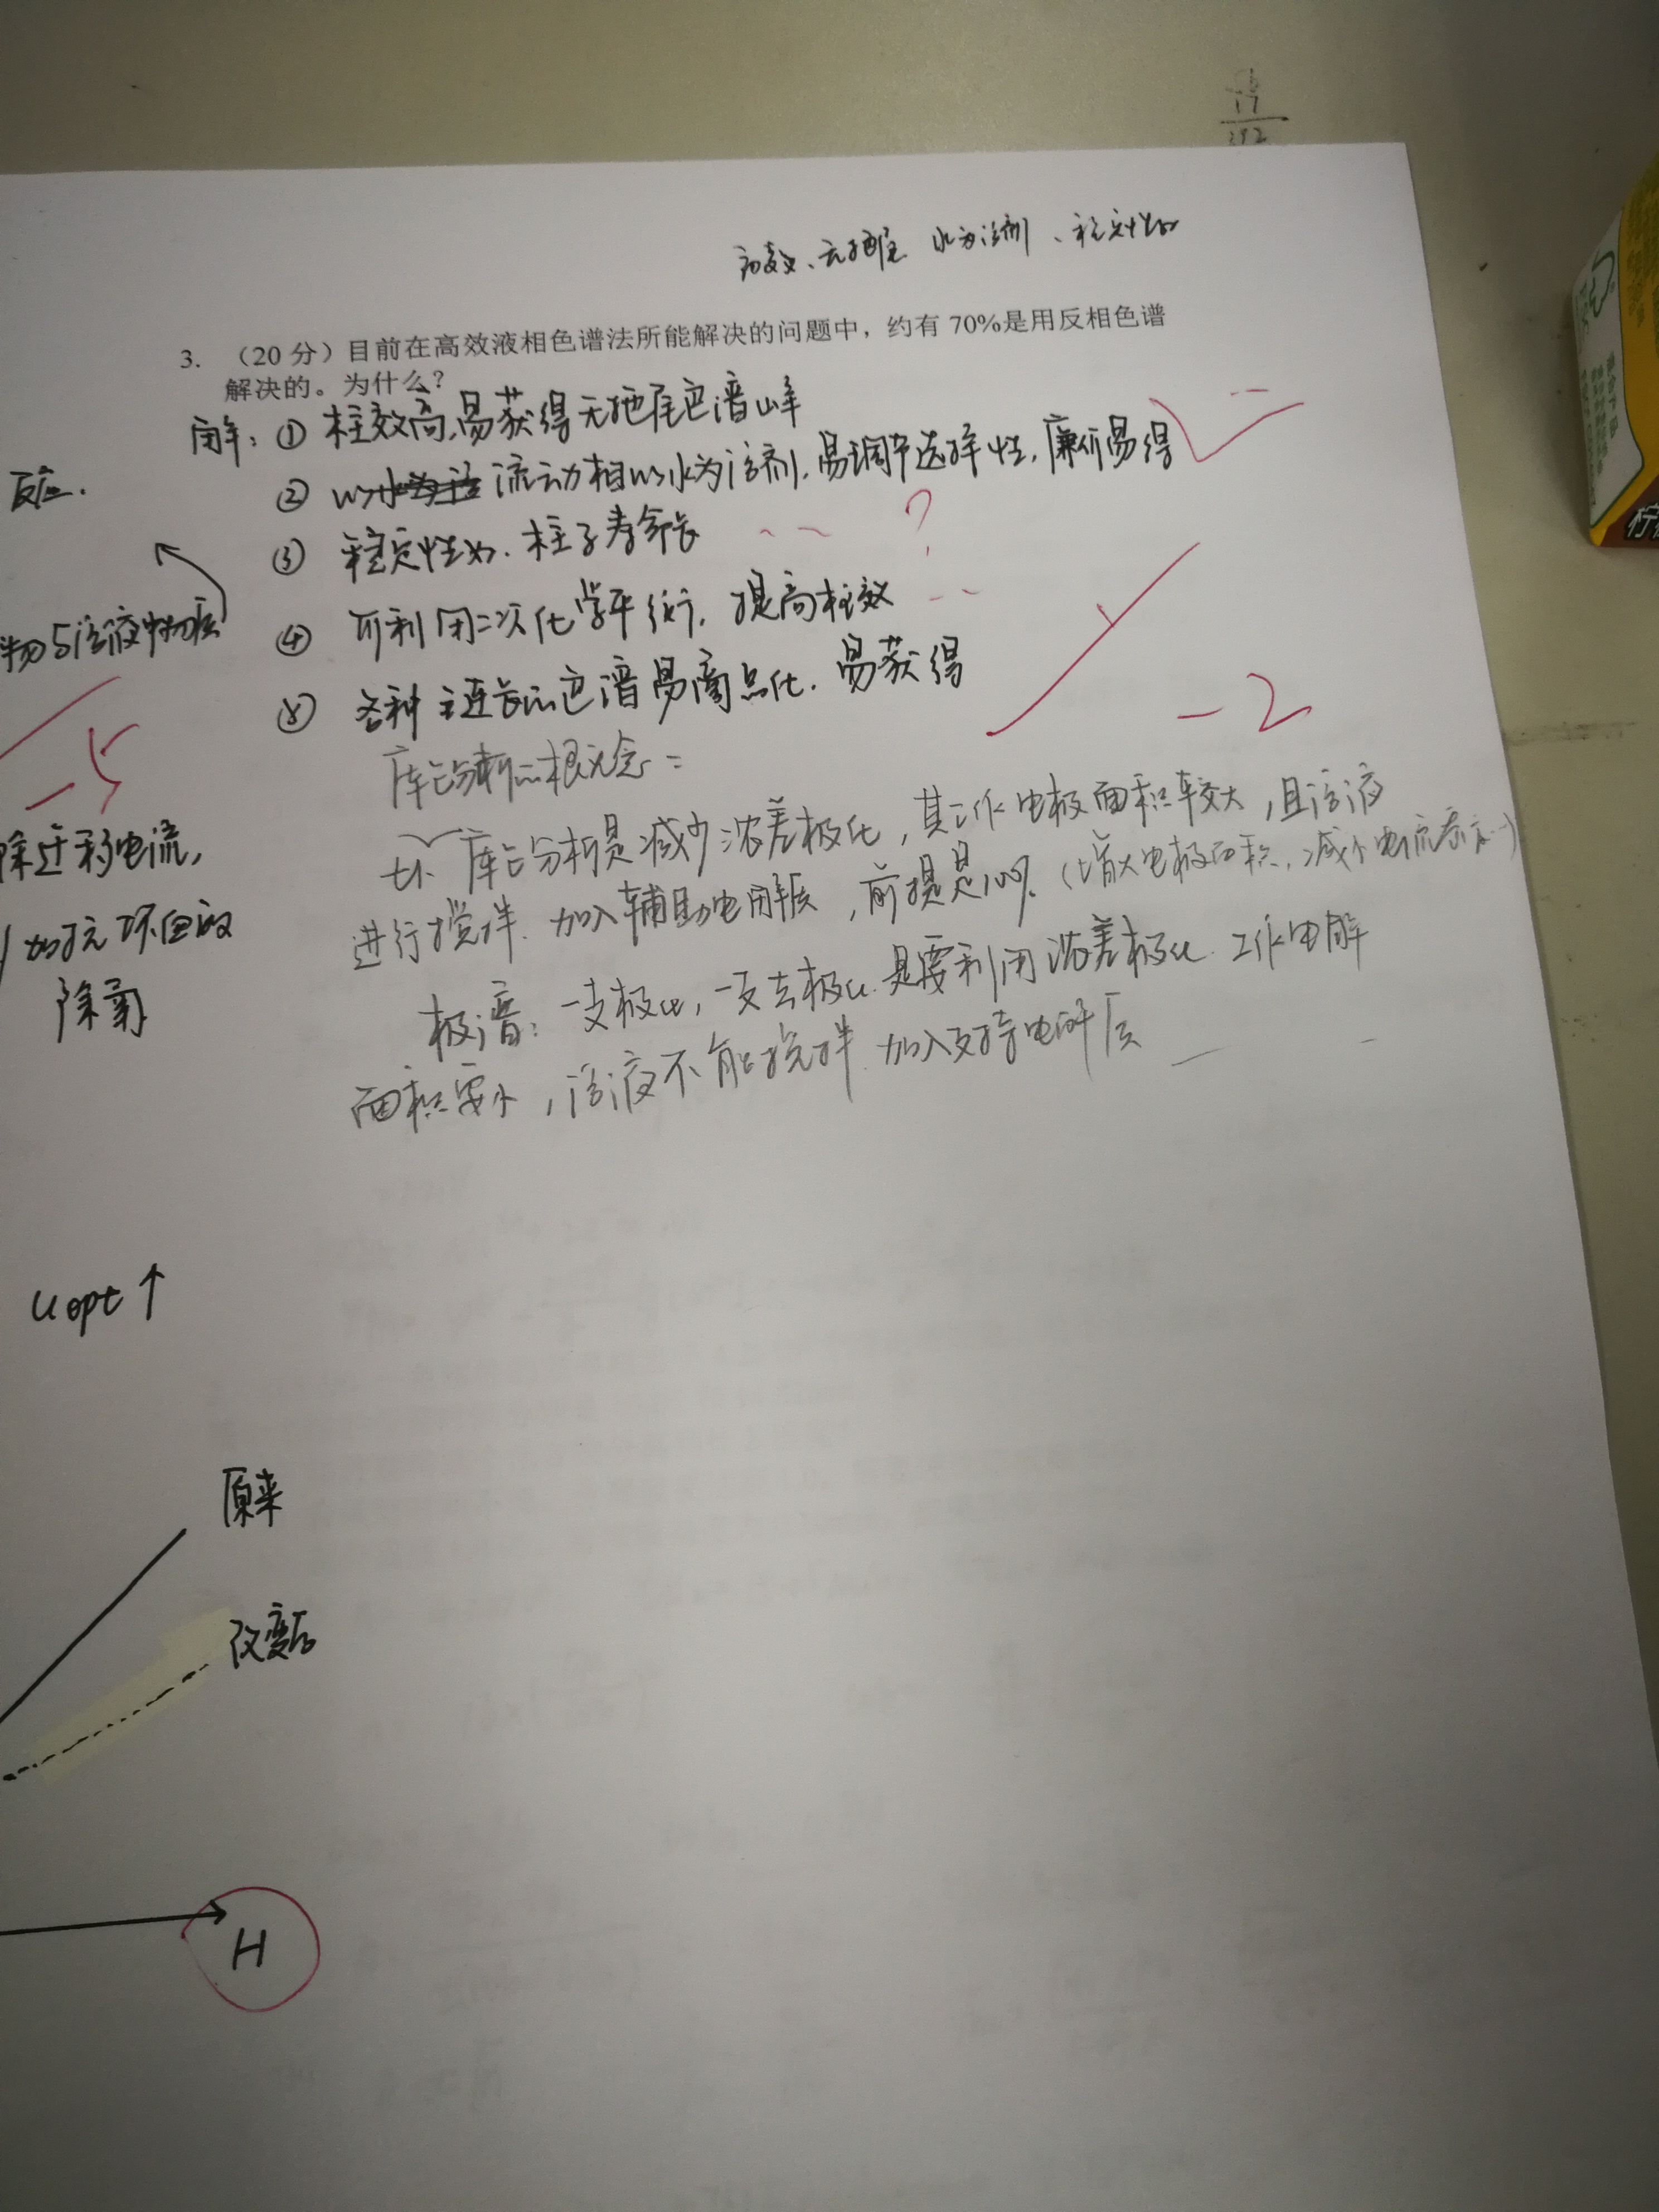 17
高效、无拖尾 水为溶剂、稳定性好
3. （20 分）目前在高效液相色谱法所能解决的问题中，约有 70%是用反相色谱
解决的。为什么？
解：① 柱效高,易获得无拖尾色谱峰
② 以水为溶 流动相以水为溶剂,易调节选择性,廉价易得
③ 稳定性好.柱子寿命长 ?
④ 可利用二次化学平衡,提高柱效
⑤ 各种 键长的色谱易商品化.易获得
-2
库仑分析的概念：
库仑分析是减少浓差极化，其工作电极面积较大，且溶液
进行搅拌.加入辅助电解质，前提是100%.（增大电极面积,减小电流密度）
极谱：一支极化,一支去极化.是要利用浓差极化.工作电解
面积要小，溶液不能搅拌.加入支持电解质
反应.
物与溶液中物质
-5
除迁移电流,
加抗坏血酸
除氧
u opt ↑
原来
改变后
H